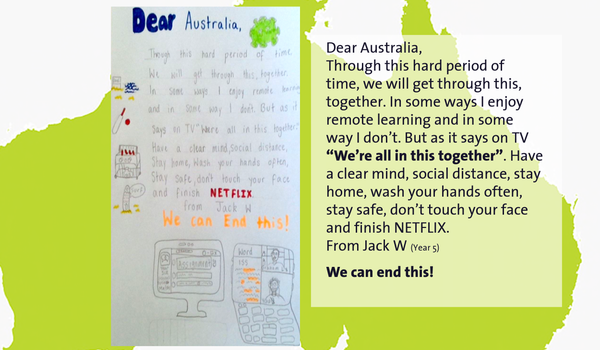 Dear Australia,
Though this hard period of time,
We will get through this, together.
In some ways I enjoy remote learning
and in some way I don't. But as it
says on TV "We're all in this together."
Have a clear mind, Social distance,
Stay home, Wash your hands often,
Stay safe, don't touch your face
and finish NETFLIX.
From Jack W
We can End this!
Word
Dear Australia,
Through this hard period of
time, we will get through this,
together. In some ways I enjoy
remote learning and in some
way I don't. But as it says on TV
“We're all in this together”. Have
a clear mind, social distance, stay
home, wash your hands often,
stay safe, don't touch your face
and finish NETFLIX.
From Jack W (Year 5)
We can end this!